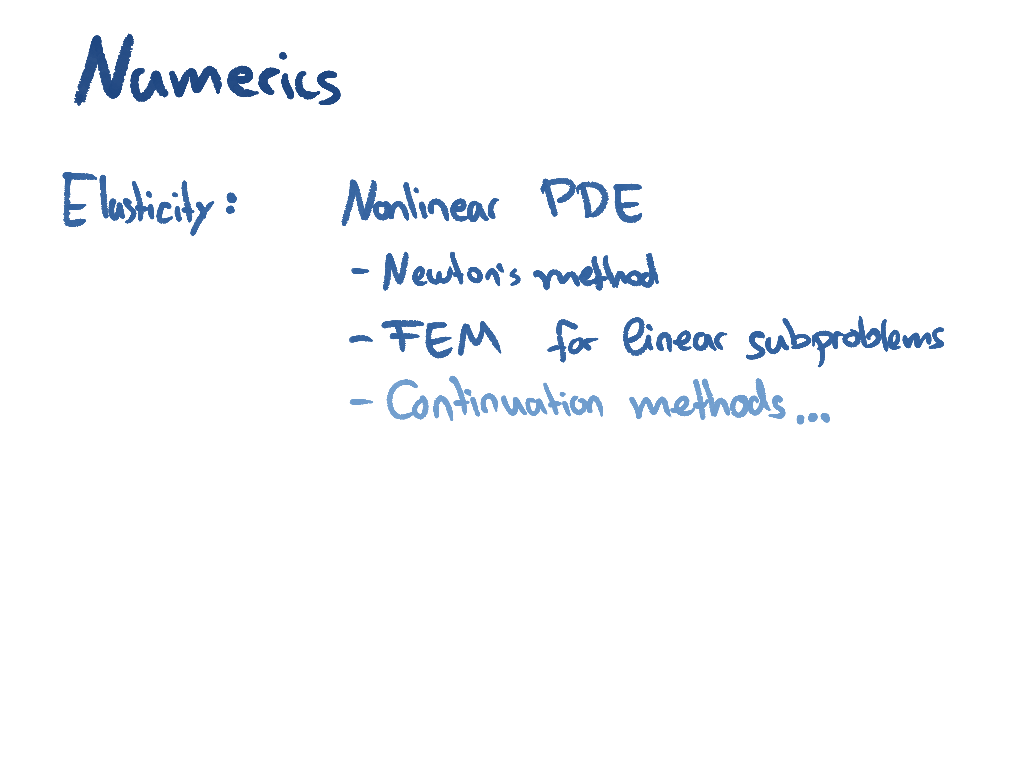 Numerics
Elasticity: Nonlinear PDE
- Newton's method
- FEM for linear subproblems
- Continuation methods...